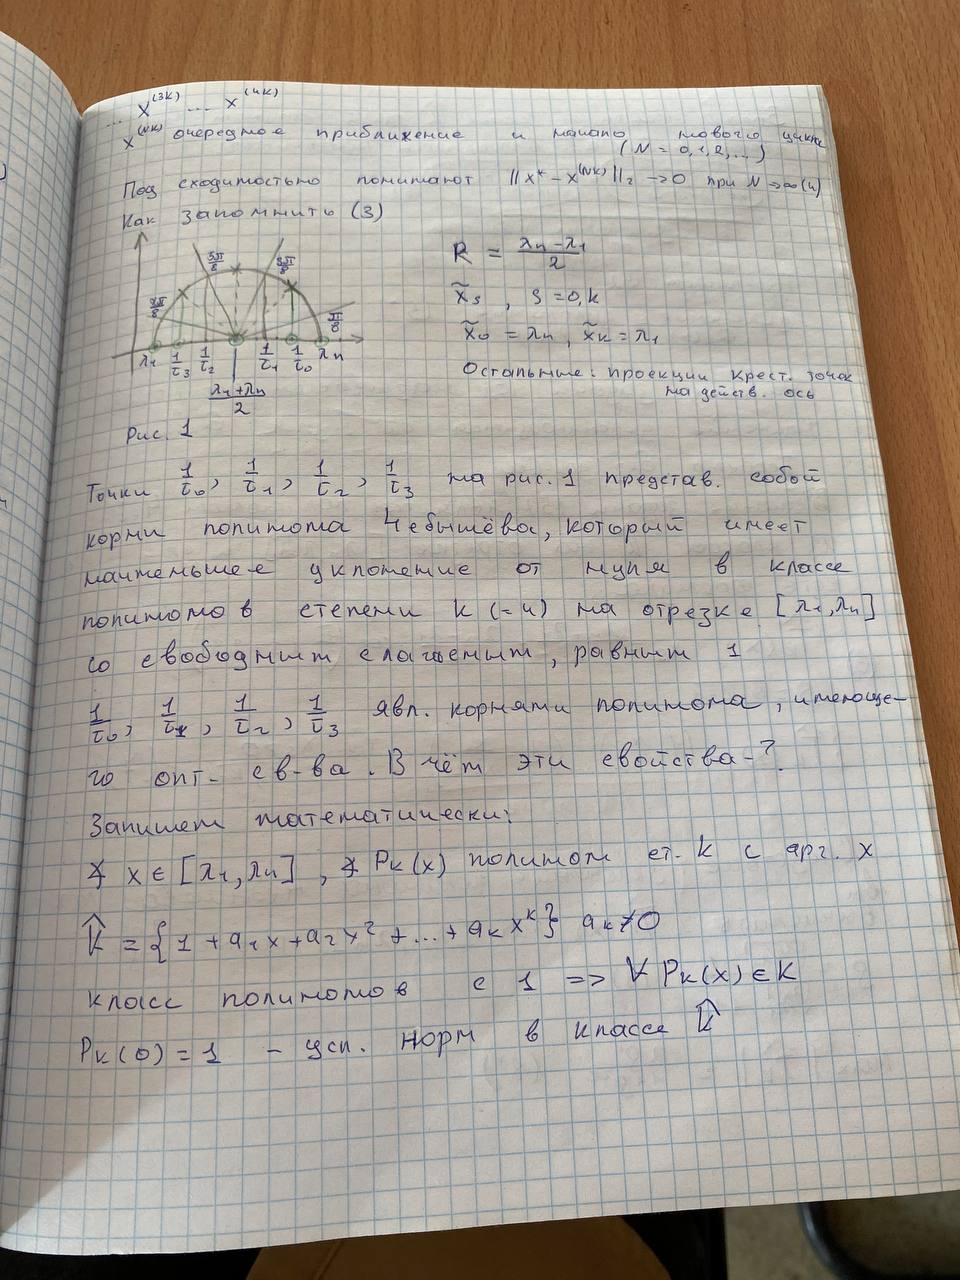 ... x^(3k) ... x^(4k)
x^(Nk) очередное приближение и начало нового цикла
(N = 0,1,2,...)
Под сходимостью понимают ||x* - x^(Nk)||₂ → 0 при N→∞ (4)
Как запомнить (3)
5π/8 3π/8
7π/8 π/8
λ₁ 1/τ₃ 1/τ₂ 1/τ₁ 1/τ₀ λn
(λ₁+λn)/2
Рис. 1
R = (λn - λ₁)/2
x̃s , s = 0,k
x̃₀ = λn , x̃k = λ₁
Остальные: проекции крест. точек
на действ. ось
Точки 1/τ₀, 1/τ₁, 1/τ₂, 1/τ₃ на рис. 1 представ. собой
корни полинома Чебышёва, который имеет
наименьшее уклонение от нуля в классе
полиномов степени k (=4) на отрезке [λ₁, λn]
со свободным слагаемым, равным 1
1/τ₀, 1/τ₁, 1/τ₂, 1/τ₃ явл. корнями полинома, имеюще-
го опт- св-ва. В чём эти свойства-?
Запишем математически:
∀ x ∈ [λ₁, λn] , ∀ Pk(x) полином ст. k с арг. x
K̂ = {1 + a₁x + a₂x² + ... + akx^k} ak ≠ 0
класс полиномов с 1 => ∀ Pk(x) ∈ K
Pk(0) = 1 - усл. норм в классе K̂